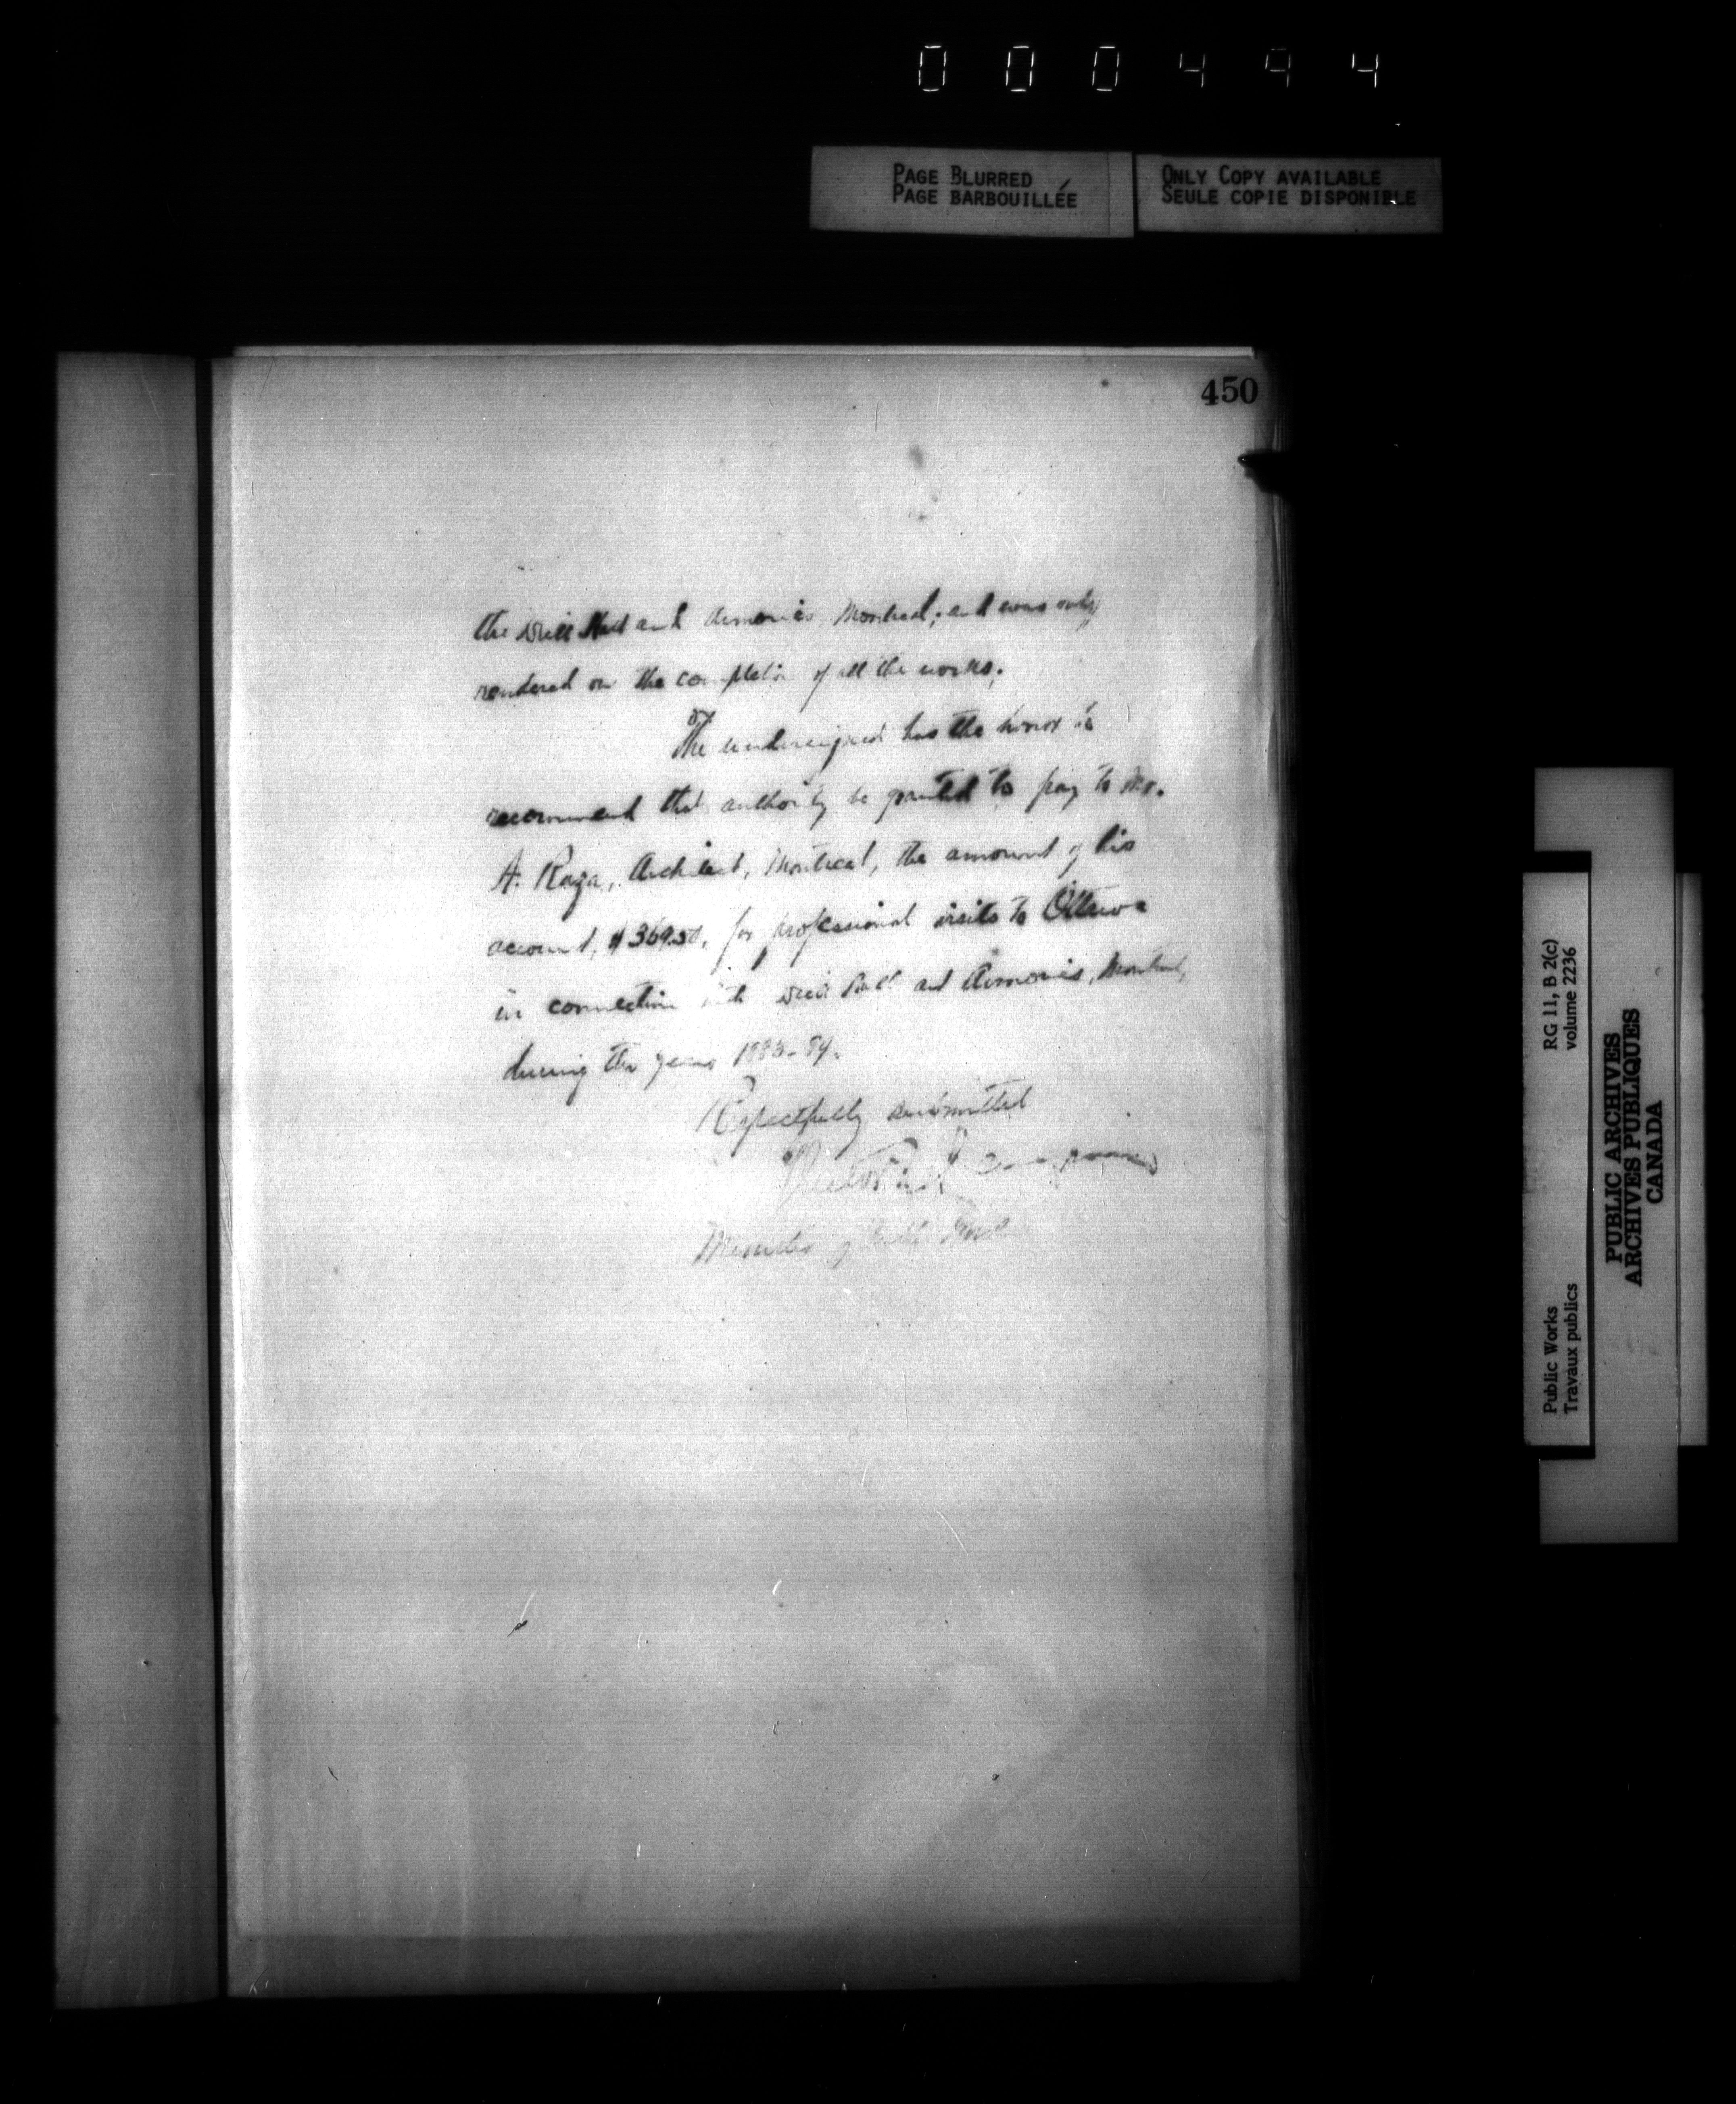 000494
PAGE BLURRED
PAGE BARBOUILLÉE
ONLY COPY AVAILABLE
SEULE COPIE DISPONIBLE
450
the Drill Hall and Armories Montreal; and was only
rendered on the completion of all the works.
The undersigned has the honor to
recommend that authority be granted to pay to Mr.
A. Raza, Architect, Montreal, the amount of his
account, $369.50, for professional visits to Ottawa
in connection with Drill Hall and Armories, Montreal,
during the years 1883-84.
Respectfully submitted
Minister of Public Works
Public Works
Travaux publics
RG 11, B 2(c)
volume 2236
PUBLIC ARCHIVES
ARCHIVES PUBLIQUES
CANADA